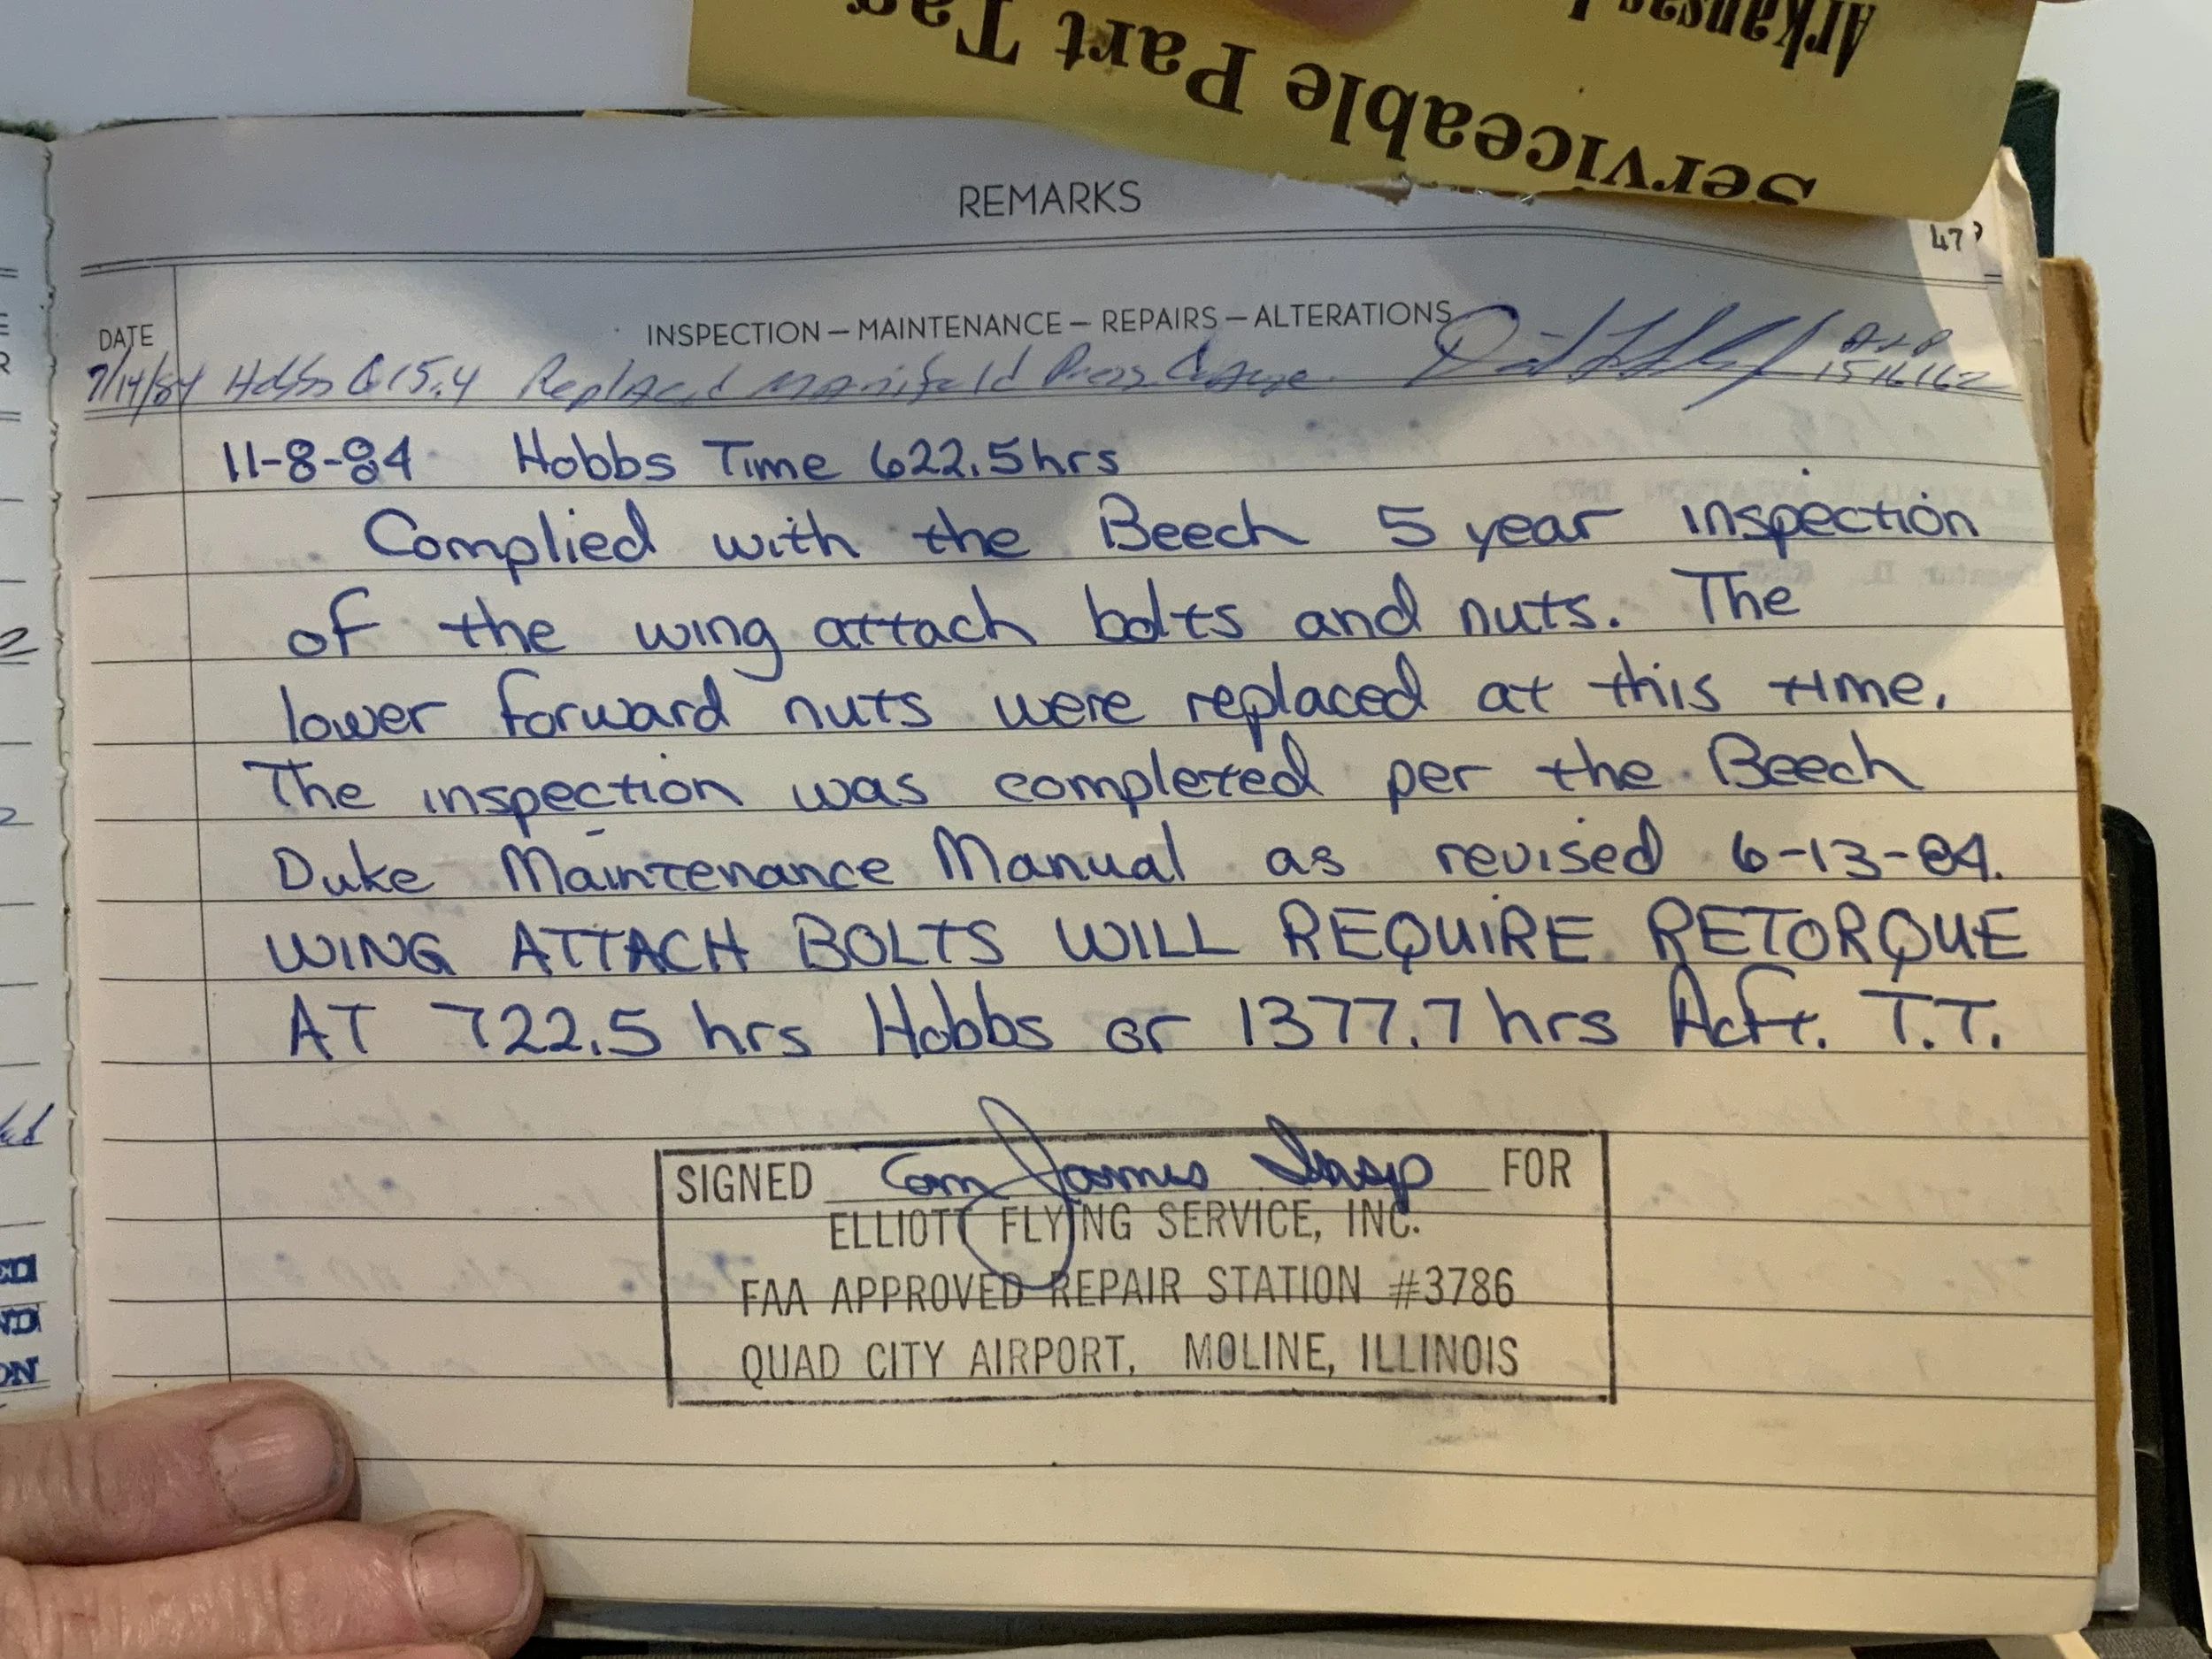 Arkansas
Serviceable Part Tag
REMARKS
47
DATE
INSPECTION — MAINTENANCE — REPAIRS — ALTERATIONS
7/14/84 Hobbs 615.4 Replaced Manifold Press Gauge A&P
1516162
11-8-84 Hobbs Time 622.5hrs
Complied with the Beech 5 year inspection
of the wing attach bolts and nuts. The
lower forward nuts were replaced at this time.
The inspection was completed per the Beech
Duke Maintenance Manual as revised 6-13-84.
WING ATTACH BOLTS WILL REQUIRE RETORQUE
AT 722.5 hrs Hobbs or 1377.7 hrs Acft. T.T.
SIGNED Tom James Insp FOR
ELLIOTT FLYING SERVICE, INC.
FAA APPROVED REPAIR STATION #3786
QUAD CITY AIRPORT, MOLINE, ILLINOIS